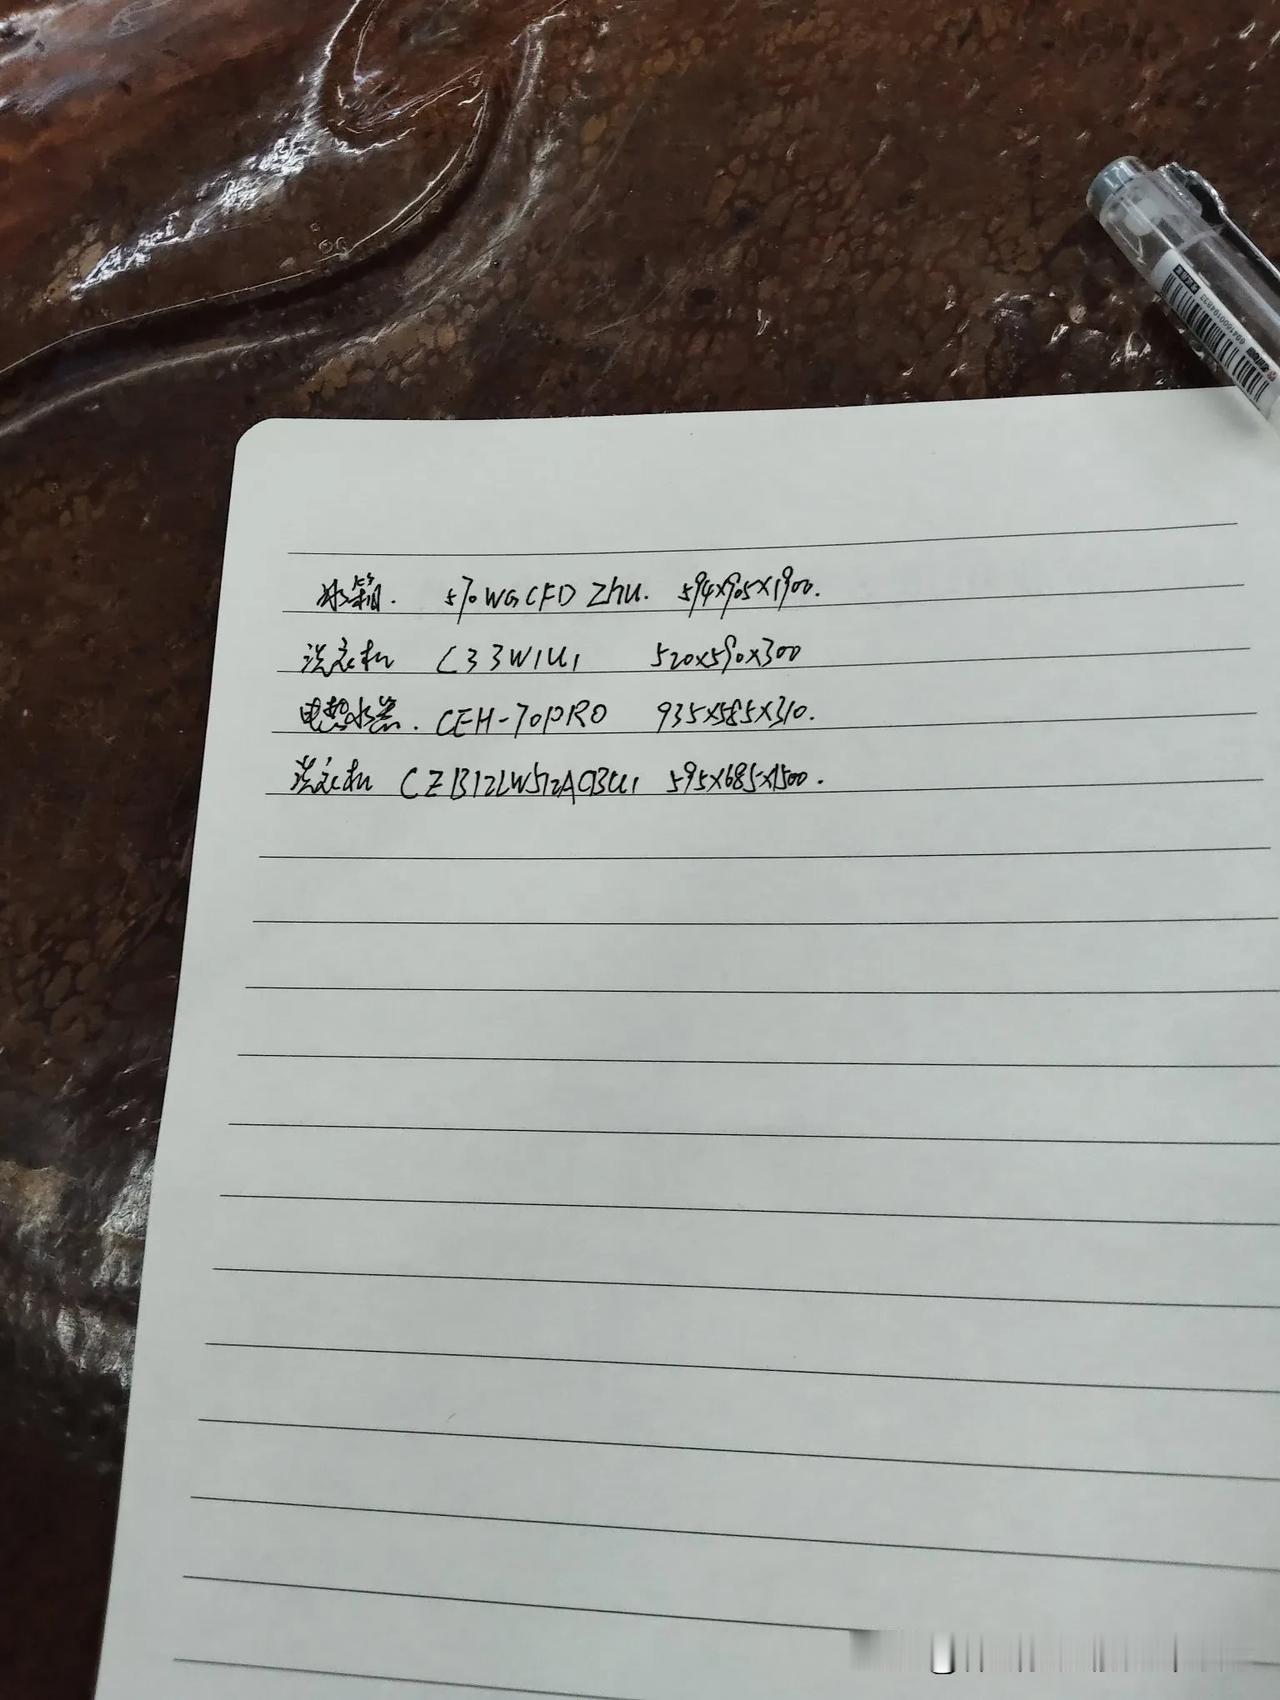 冰箱. 570WGCFDZhu. 594x905x1900.
洗衣机 C33W1U1 520x590x300
电热水器. CEH-70PRO 935x585x310.
洗衣机 CEB12LW512ACBU1 595x685x1500.